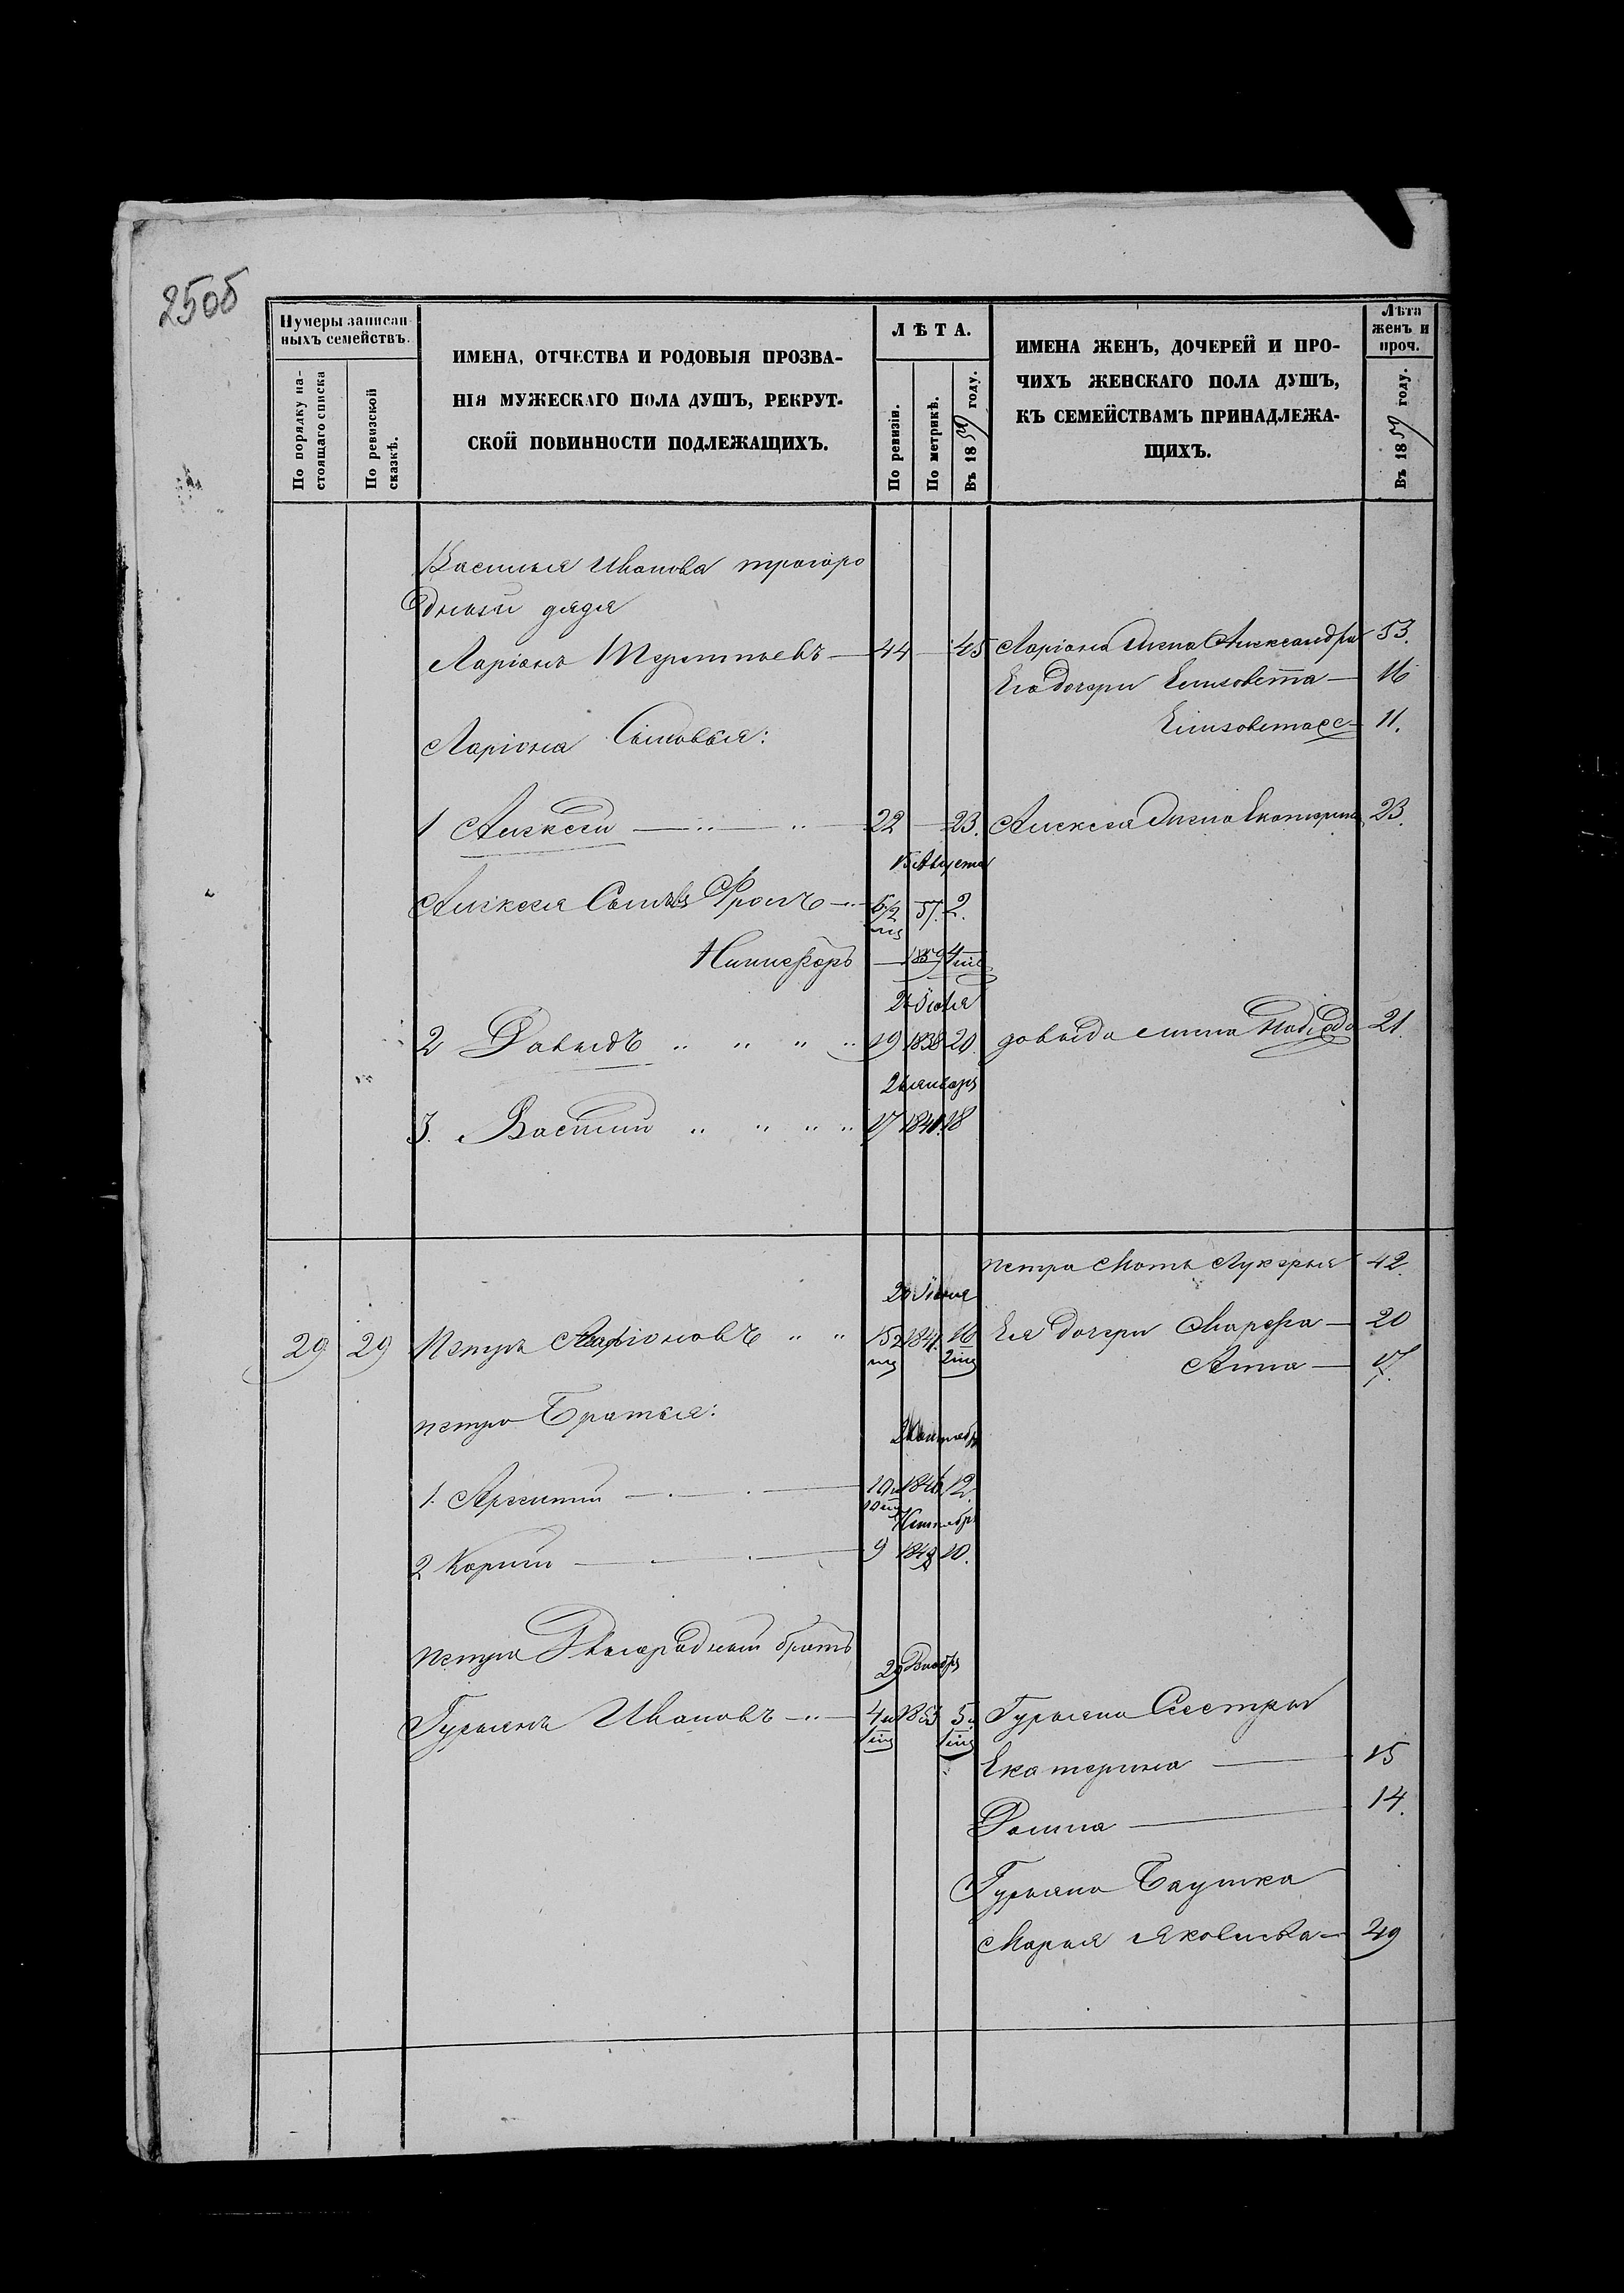 250б
Нумеры записан-
ныхъ семействъ.
По порядку на-
стоящаго списка
По ревизской
сказкѣ.
ИМЕНА, ОТЧЕСТВА И РОДОВЫЯ ПРОЗВА-
НІЯ МУЖЕСКАГО ПОЛА ДУШЪ, РЕКРУТ-
СКОЙ ПОВИННОСТИ ПОДЛЕЖАЩИХЪ.
ЛѢТА.
По ревизіи.
По метрикѣ.
Въ 1859 году.
ИМЕНА ЖЕНЪ, ДОЧЕРЕЙ И ПРО-
ЧИХЪ ЖЕНСКАГО ПОЛА ДУШЪ,
КЪ СЕМЕЙСТВАМЪ ПРИНАДЛЕЖА-
ЩИХЪ.
Лѣта
женъ и
проч.
Въ 1859 году.
Василья Иванова трогоро
дный дядя
Ларіонъ Терентьевъ — 44 — 45 Ларіона жена Александра 53.
Его дочери Елизовета — 16
Ларіона Сыновья: Елизовета — 11.
1 Алексей — 22 — 23. Алексея жена Екатерина 23.
15 Августа
Алексея Сынъ Фролъ 6/2 57. 2.
Никифоръ — 1859 4
2 Давыдъ 19 1838 20. довыда жена 21
3. Василий 17 1841. 18
петра мать Лукерья 42.
29 29 Петръ Ларіоновъ 15 1841. 16 Ея дочери Марефа — 20
Анна — 17.
петра Братья:
1. Арсентий — 10 1846 12.
2 Корпий — 9 1849 10.
петра Двоюродный братъ
Гурьянъ Иванов 4 1853 5 Гурьяна Сестры
Екатерина — 15
Домна — 14.
Гурьяна Баушка
Марья Яковлева — 49